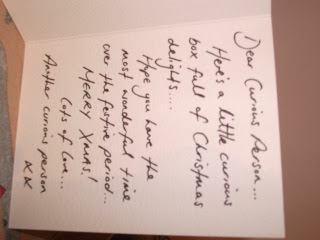 Dear Curious Person...
Here's a little curious
box full of Christmas
delights....
Hope you have the
most wonderful time
over the festive period...
MERRY XMAS!
Lots of love...
Another curious person
XX